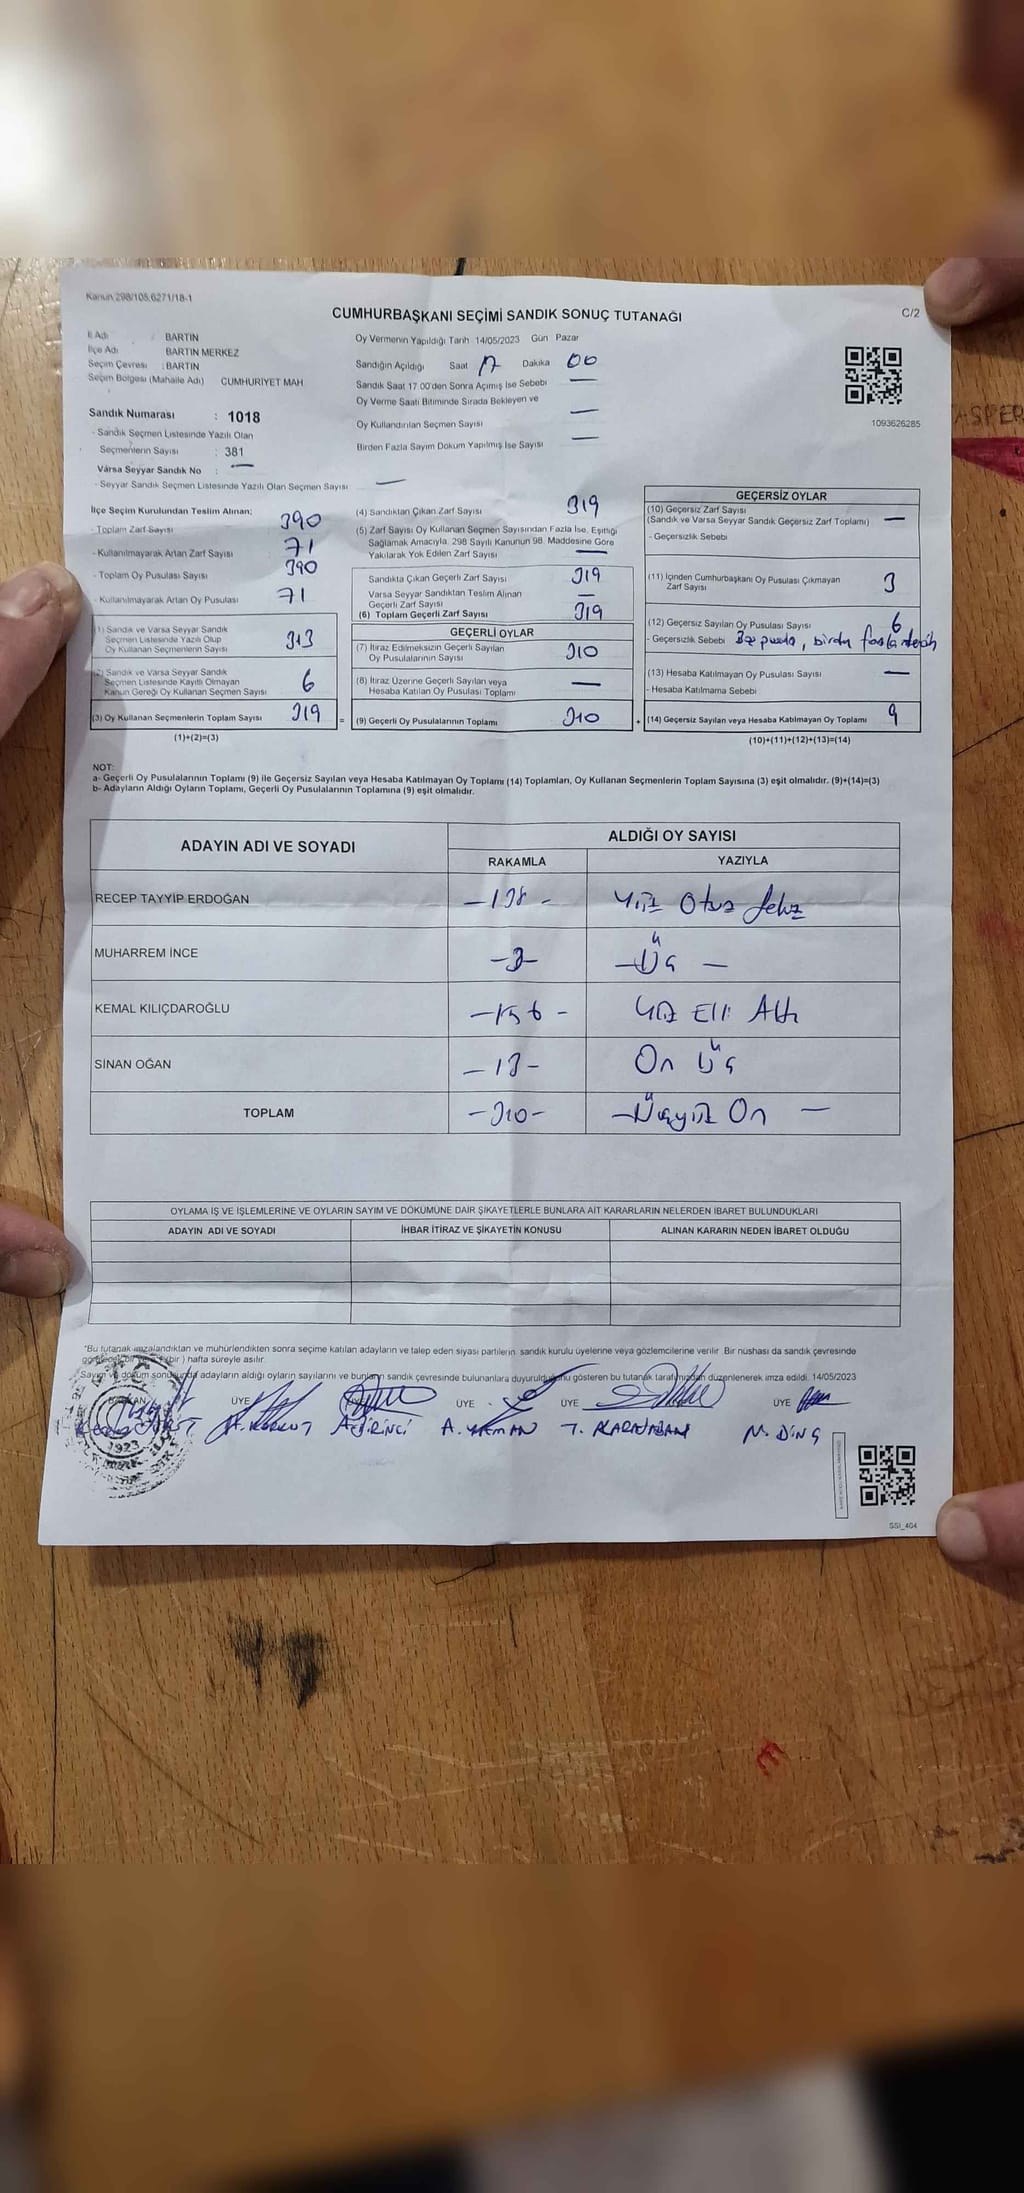 Kanun 298/105,6271/18-1
C/2
CUMHURBAŞKANI SEÇİMİ SANDIK SONUÇ TUTANAĞI
İl Adı : BARTIN
İlçe Adı : BARTIN MERKEZ
Seçim Çevresi : BARTIN
Seçim Bölgesi (Mahalle Adı) CUMHURİYET MAH
Sandık Numarası : 1018
- Sandık Seçmen Listesinde Yazılı Olan
Seçmenlerin Sayısı : 381
Varsa Seyyar Sandık No : —
- Seyyar Sandık Seçmen Listesinde Yazılı Olan Seçmen Sayısı —
Oy Vermenin Yapıldığı Tarih 14/05/2023 Gün Pazar
Sandığın Açıldığı Saat 17 Dakika 00
Sandık Saat 17.00'den Sonra Açımış İse Sebebi —
Oy Verme Saati Bitiminde Sırada Bekleyen ve
Oy Kullandırılan Seçmen Sayısı —
Birden Fazla Sayım Döküm Yapılmış İse Sayısı —
1093626285
ASPER
İlçe Seçim Kurulundan Teslim Alınan;
- Toplam Zarf Sayısı 390
- Kullanılmayarak Artan Zarf Sayısı 71
- Toplam Oy Pusulası Sayısı 390
- Kullanılmayarak Artan Oy Pusulası 71
(1) Sandık ve Varsa Seyyar Sandık
Seçmen Listesinde Yazılı Olup
Oy Kullanan Seçmenlerin Sayısı 313
(2) Sandık ve Varsa Seyyar Sandık
Seçmen Listesinde Kayıtlı Olmayan
Kanun Gereği Oy Kullanan Seçmen Sayısı 6
(3) Oy Kullanan Seçmenlerin Toplam Sayısı 319
(1)+(2)=(3)
(4) Sandıktan Çıkan Zarf Sayısı 319
(5) Zarf Sayısı Oy Kullanan Seçmen Sayısından Fazla İse, Eşitliği
Sağlamak Amacıyla, 298 Sayılı Kanunun 98. Maddesine Göre
Yakılarak Yok Edilen Zarf Sayısı —
Sandıkta Çıkan Geçerli Zarf Sayısı 319
Varsa Seyyar Sandıktan Teslim Alınan
Geçerli Zarf Sayısı —
(6) Toplam Geçerli Zarf Sayısı 319
GEÇERLİ OYLAR
(7) İtiraz Edilmeksizin Geçerli Sayılan
Oy Pusulalarının Sayısı 310
(8) İtiraz Üzerine Geçerli Sayılan veya
Hesaba Katılan Oy Pusulası Toplamı —
= (9) Geçerli Oy Pusulalarının Toplamı 310
GEÇERSİZ OYLAR
(10) Geçersiz Zarf Sayısı —
(Sandık ve Varsa Seyyar Sandık Geçersiz Zarf Toplamı)
- Geçersizlik Sebebi
(11) İçinden Cumhurbaşkanı Oy Pusulası Çıkmayan
Zarf Sayısı 3
(12) Geçersiz Sayılan Oy Pusulası Sayısı 6
- Geçersizlik Sebebi Boş pusula, birden fazla tercih
(13) Hesaba Katılmayan Oy Pusulası Sayısı —
- Hesaba Katılmama Sebebi
+ (14) Geçersiz Sayılan veya Hesaba Katılmayan Oy Toplamı 9
(10)+(11)+(12)+(13)=(14)
NOT:
a- Geçerli Oy Pusulalarının Toplamı (9) ile Geçersiz Sayılan veya Hesaba Katılmayan Oy Toplamı (14) Toplamları, Oy Kullanan Seçmenlerin Toplam Sayısına (3) eşit olmalıdır. (9)+(14)=(3)
b- Adayların Aldığı Oyların Toplamı, Geçerli Oy Pusulalarının Toplamına (9) eşit olmalıdır.
ADAYIN ADI VE SOYADI ALDIĞI OY SAYISI
RAKAMLA YAZIYLA
RECEP TAYYİP ERDOĞAN -138- Yüz Otuz Sekiz
MUHARREM İNCE -3- -Üç-
KEMAL KILIÇDAROĞLU -156- Yüz Elli Altı
SİNAN OĞAN -13- On Üç
TOPLAM -310- -Üçyüz On-
OYLAMA İŞ VE İŞLEMLERİNE VE OYLARIN SAYIM VE DÖKÜMÜNE DAİR ŞİKAYETLERLE BUNLARA AİT KARARLARIN NELERDEN İBARET BULUNDUKLARI
ADAYIN ADI VE SOYADI İHBAR İTİRAZ VE ŞİKAYETİN KONUSU ALINAN KARARIN NEDEN İBARET OLDUĞU
"Bu tutanak imzalandıktan ve mühürlendikten sonra seçime katılan adayların ve talep eden siyasi partilerin sandık kurulu üyelerine veya gözlemcilerine verilir. Bir nüshası da sandık çevresinde
bir ) hafta süreyle asılır.
Sayım ve döküm adayların aldığı oyların sayılarını ve bunların sandık çevresinde bulunanlara duyurulduğunu gösteren bu tutanak tarafımızdan düzenlenerek imza edildi. 14/05/2023
BAŞKAN ÜYE ÜYE ÜYE ÜYE
A. KORKUT A. YAMAN T. KARATABAN M. DİNÇ
1923
SSI_404